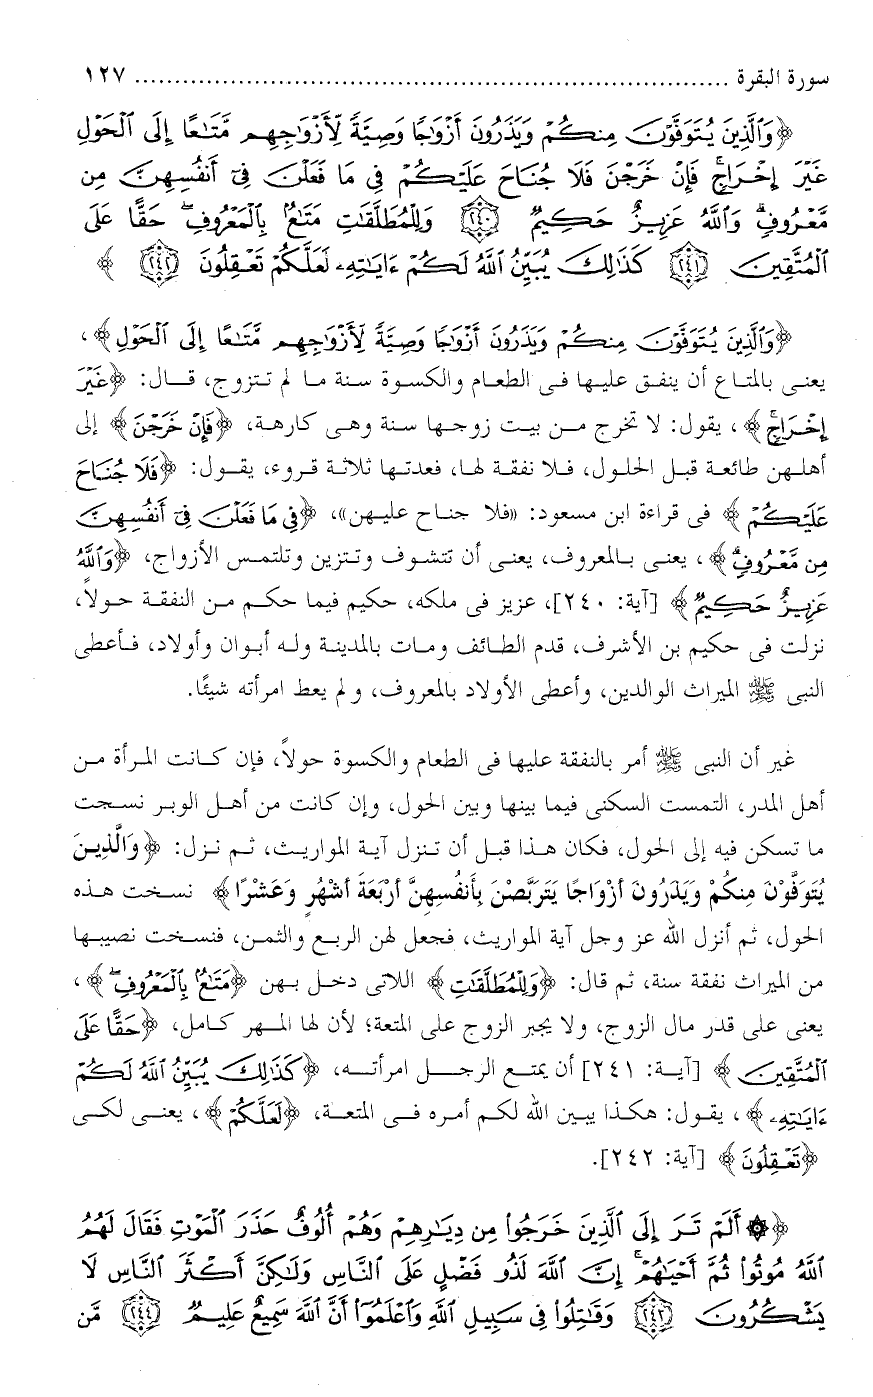 سورة البقرة ........................................................................... ١٢٧
﴿وَٱلَّذِينَ يُتَوَفَّوْنَ مِنكُمْ وَيَذَرُونَ أَزْوَٰجًا وَصِيَّةً لِّأَزْوَٰجِهِم مَّتَـٰعًا إِلَى ٱلْحَوْلِ
غَيْرَ إِخْرَاجٍ ۚ فَإِنْ خَرَجْنَ فَلَا جُنَاحَ عَلَيْكُمْ فِى مَا فَعَلْنَ فِىٓ أَنفُسِهِنَّ مِن
مَّعْرُوفٍ ۗ وَٱللَّهُ عَزِيزٌ حَكِيمٌ ﴿٢٤٠﴾ وَلِلْمُطَلَّقَـٰتِ مَتَـٰعٌۢ بِٱلْمَعْرُوفِ ۖ حَقًّا عَلَى
ٱلْمُتَّقِينَ ﴿٢٤١﴾ كَذَٰلِكَ يُبَيِّنُ ٱللَّهُ لَكُمْ ءَايَـٰتِهِۦ لَعَلَّكُمْ تَعْقِلُونَ ﴿٢٤٢﴾ ﴾
﴿وَٱلَّذِينَ يُتَوَفَّوْنَ مِنكُمْ وَيَذَرُونَ أَزْوَٰجًا وَصِيَّةً لِّأَزْوَٰجِهِم مَّتَـٰعًا إِلَى ٱلْحَوْلِ﴾،
يعنى بالمتاع أن ينفق عليها فى الطعام والكسوة سنة ما لم تتزوج، قال: ﴿غَيْرَ
إِخْرَاجٍ ۚ﴾، يقول: لا تخرج من بيت زوجها سنة وهى كارهة، ﴿فَإِنْ خَرَجْنَ﴾ إلى
أهلهن طائعة قبل الحلول، فلا نفقة لها، فعدتها ثلاثة قروء، يقول: ﴿فَلَا جُنَاحَ
عَلَيْكُمْ﴾ فى قراءة ابن مسعود: «فلا جناح عليهن»، ﴿فِى مَا فَعَلْنَ فِىٓ أَنفُسِهِنَّ
مِن مَّعْرُوفٍ ۗ﴾، يعنى بالمعروف، يعنى أن تتشوف وتتزين وتلتمس الأزواج، ﴿وَٱللَّهُ
عَزِيزٌ حَكِيمٌ﴾ [آية: ٢٤٠]، عزيز فى ملكه، حكيم فيما حكم من النفقة حولاً،
نزلت فى حكيم بن الأشرف، قدم الطائف ومات بالمدينة وله أبوان وأولاد، فأعطى
النبى ﷺ الميراث الوالدين، وأعطى الأولاد بالمعروف، ولم يعط امرأته شيئًا.
غير أن النبى ﷺ أمر بالنفقة عليها فى الطعام والكسوة حولاً، فإن كانت المرأة من
أهل المدر، التمست السكنى فيما بينها وبين الحول، وإن كانت من أهل الوبر نسجت
ما تسكن فيه إلى الحول، فكان هذا قبل أن تنزل آية المواريث، ثم نزل: ﴿وَالَّذِينَ
يُتَوَفَّوْنَ مِنكُمْ وَيَذَرُونَ أَزْوَاجًا يَتَرَبَّصْنَ بِأَنفُسِهِنَّ أَرْبَعَةَ أَشْهُرٍ وَعَشْرًا﴾ نسخت هذه
الحول، ثم أنزل الله عز وجل آية المواريث، فجعل لهن الربع والثمن، فنسخت نصيبها
من الميراث نفقة سنة، ثم قال: ﴿وَلِلْمُطَلَّقَـٰتِ﴾ اللاتى دخل بهن ﴿مَتَـٰعٌۢ بِٱلْمَعْرُوفِ ۖ﴾،
يعنى على قدر مال الزوج، ولا يجبر الزوج على المتعة؛ لأن لها المهر كامل، ﴿حَقًّا عَلَى
ٱلْمُتَّقِينَ﴾ [آية: ٢٤١] أن يمتع الرجل امرأته، ﴿كَذَٰلِكَ يُبَيِّنُ ٱللَّهُ لَكُمْ
ءَايَـٰتِهِۦ﴾، يقول: هكذا يبين الله لكم أمره فى المتعة، ﴿لَعَلَّكُمْ﴾، يعنى لكى
﴿تَعْقِلُونَ﴾ [آية: ٢٤٢].
﴿۞ أَلَمْ تَرَ إِلَى ٱلَّذِينَ خَرَجُوا۟ مِن دِيَـٰرِهِمْ وَهُمْ أُلُوفٌ حَذَرَ ٱلْمَوْتِ فَقَالَ لَهُمُ
ٱللَّهُ مُوتُوا۟ ثُمَّ أَحْيَـٰهُمْ ۚ إِنَّ ٱللَّهَ لَذُو فَضْلٍ عَلَى ٱلنَّاسِ وَلَـٰكِنَّ أَكْثَرَ ٱلنَّاسِ لَا
يَشْكُرُونَ ﴿٢٤٣﴾ وَقَـٰتِلُوا۟ فِى سَبِيلِ ٱللَّهِ وَٱعْلَمُوٓا۟ أَنَّ ٱللَّهَ سَمِيعٌ عَلِيمٌ ﴿٢٤٤﴾ مَّن